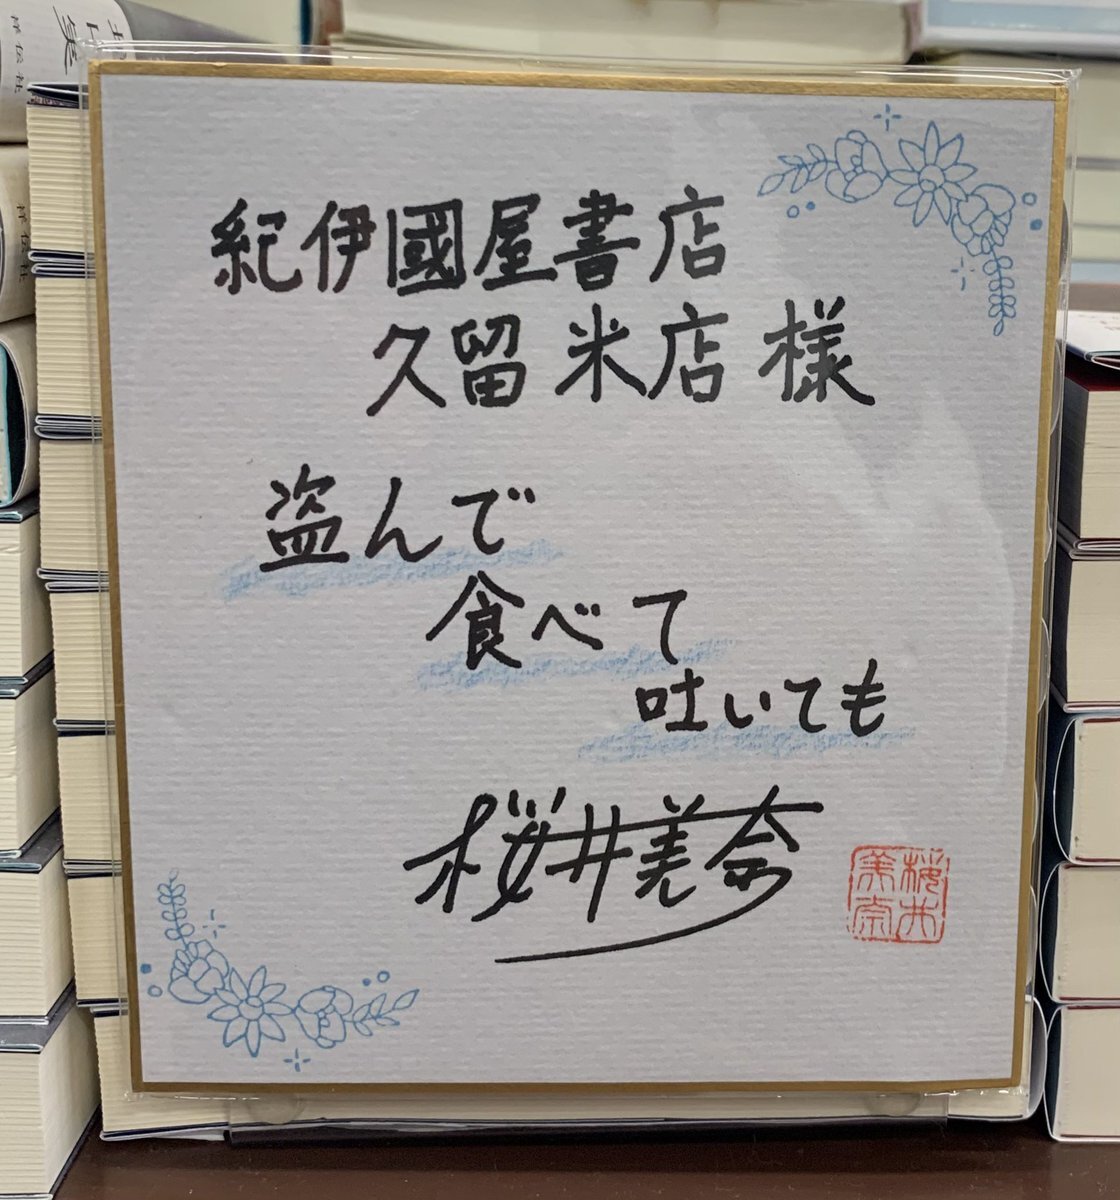 紀伊國屋書店
久留米店 様
盗んで
食べて
吐いても
桜井美奈
桜井
美奈
祥伝社
祥伝社